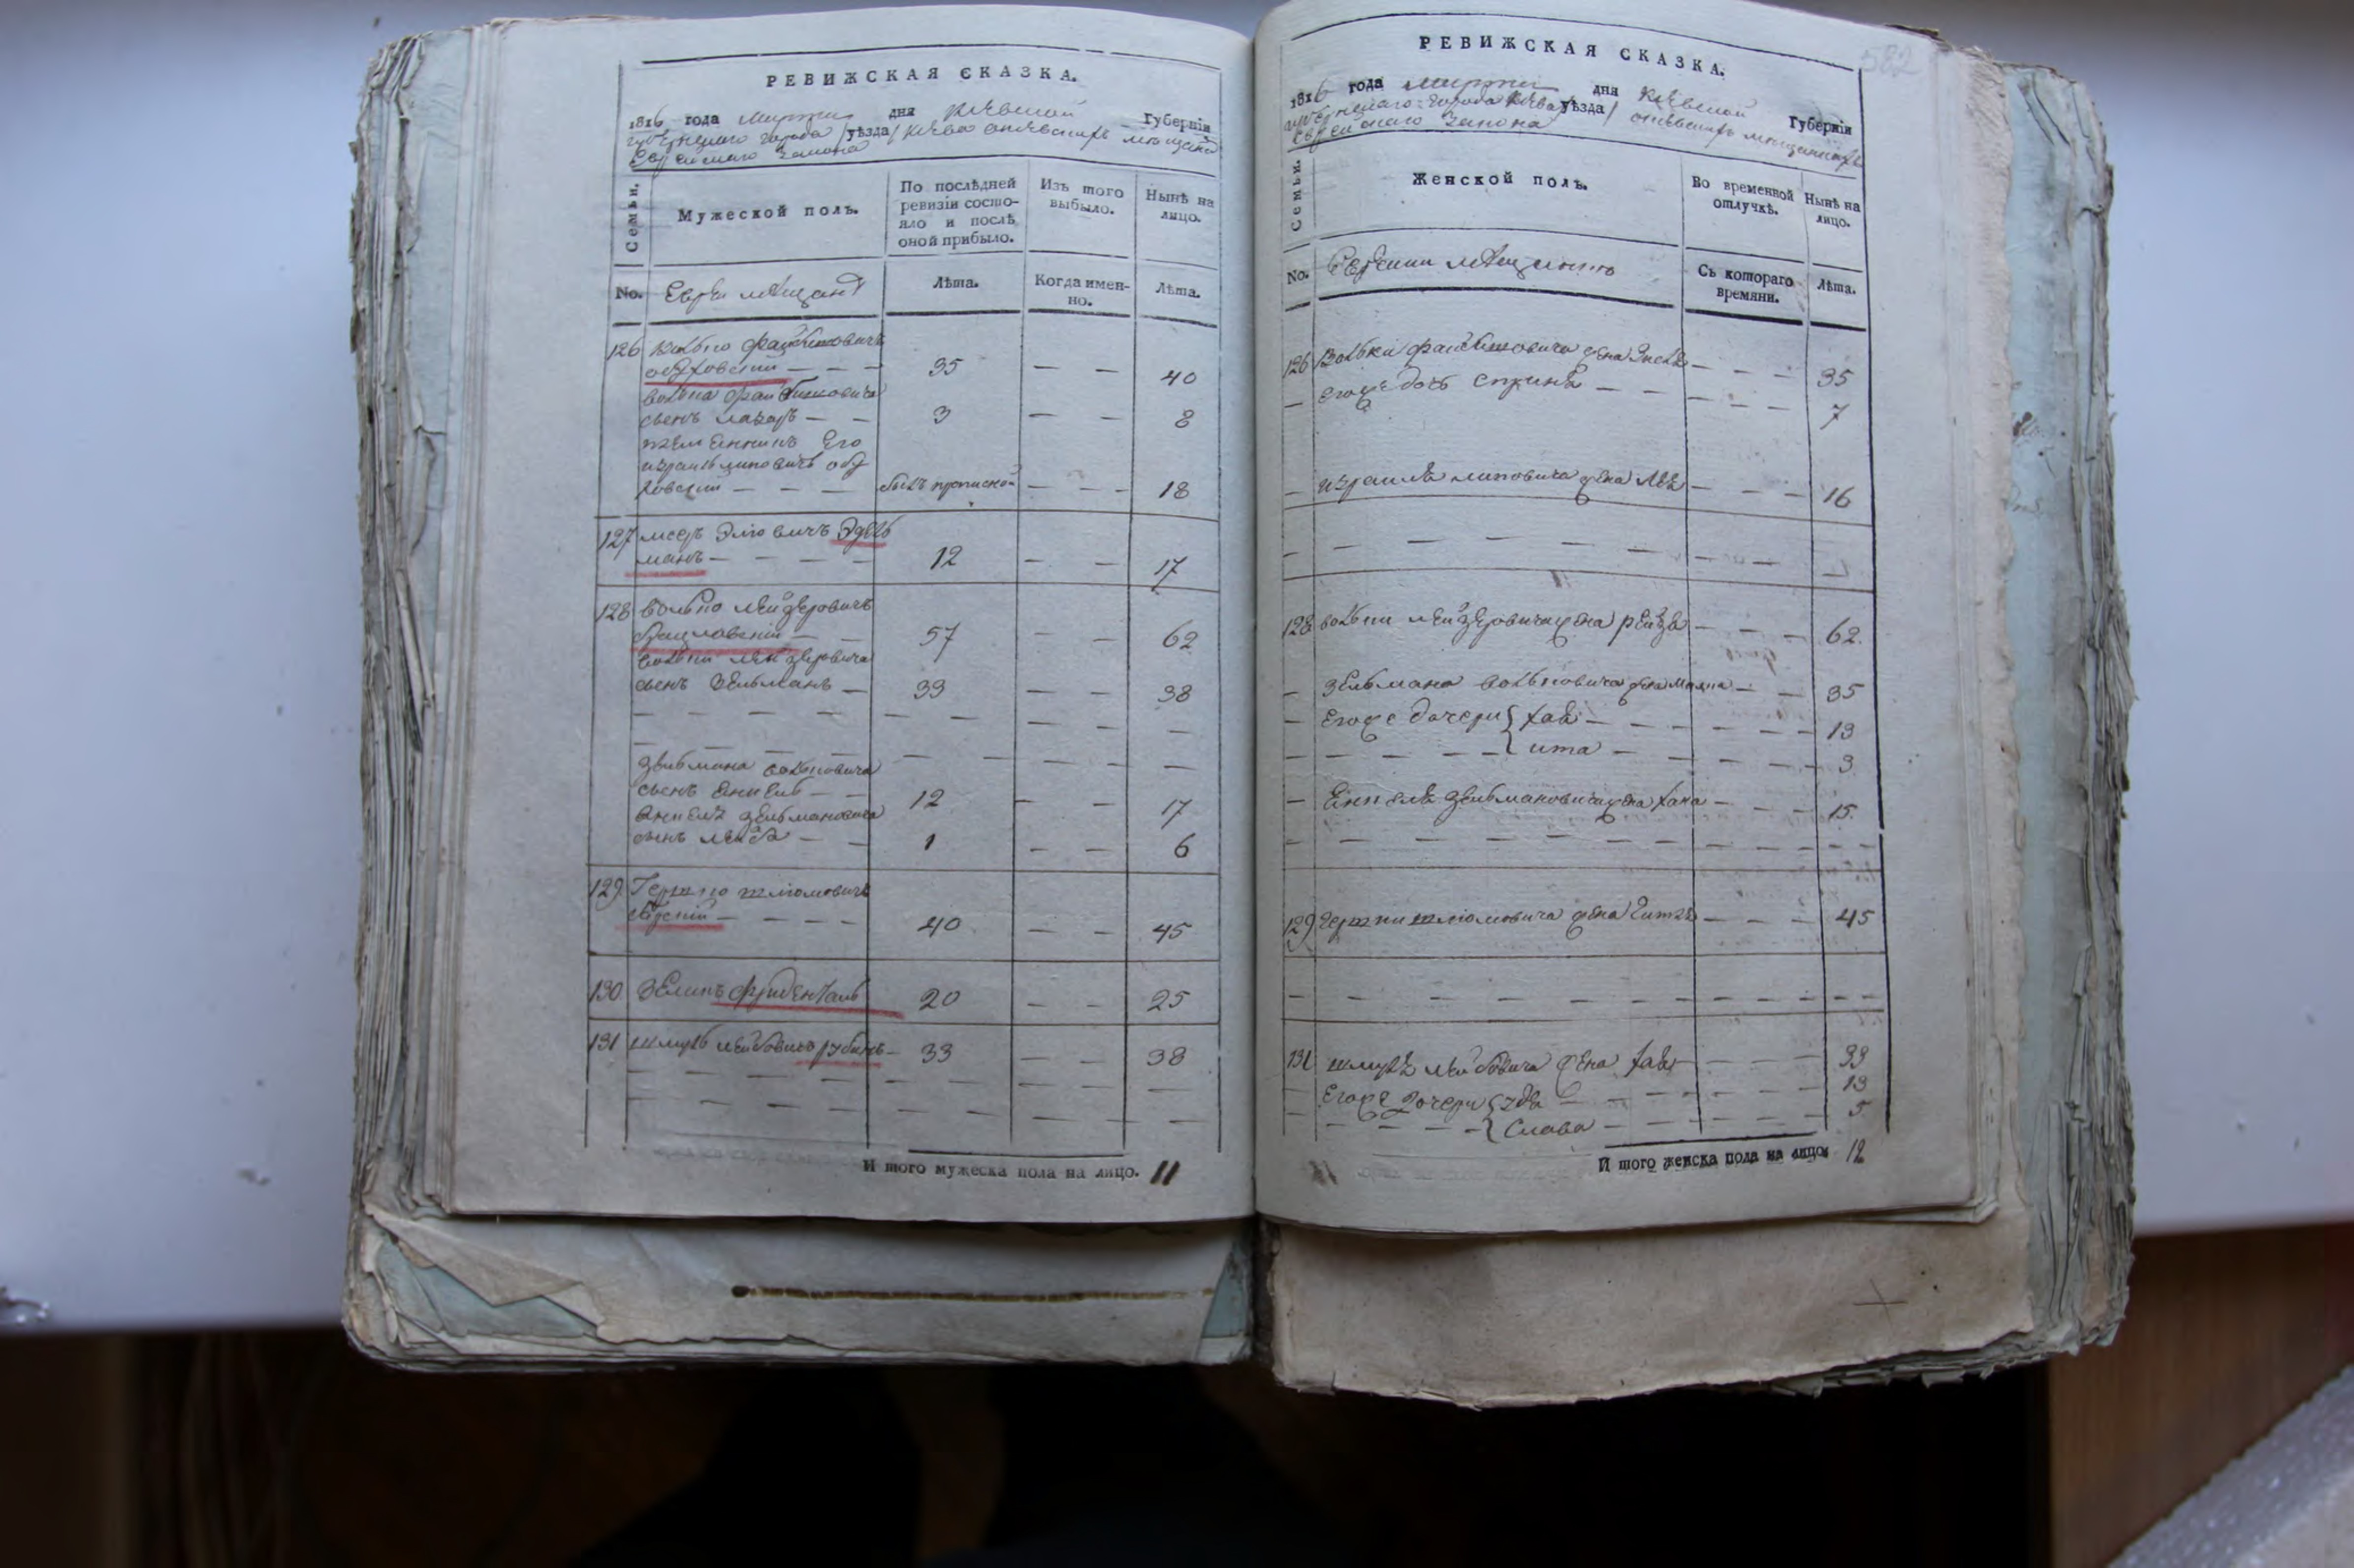 РЕВИЖСКАЯ СКАЗКА.
1816 года Марта дня Киевской Губерніи
губернскаго города /уѣзда/ Киева мещанъ
Еврейскаго Закона
Семьи.
Мужеской полъ.
По послѣдней ревизіи состо-
яло и послѣ
оной прибыло.
Изъ того
выбыло.
Нынѣ на
лицо.
No.
Евреи мещанѣ
Лѣта.
Когда имен-
но.
Лѣта.
126 Волько Файбишовичъ
Обуховский — — — 35 — — 40
Волька Файбишовича
сынъ Лазарь — — 3 — — 8
племенникъ Его
Израиль Липовичъ Обу
ховский — — — былъ прописной — — — 18
127 Меер Элювичъ Эдель
манъ — — — — 12 — — 17
128 Волько Лейзеровичъ
Брацлавский — — 57 — — 62
Вольки Лейзеровича
сынъ Зельманъ — 33 — — 38
Зельмана Вольковича
сынъ Енкель — — 12 — — 17
Енкеля Зельмановича
сынъ Лейба — — 1 — — 6
129 Гершко Шліомовичъ
— — — — 40 — — 45
130 Зеликъ Фриденталь 20 — — 25
131 Шмуль Лейбовичъ Рубинъ — 33 — — 38
И того мужеска пола на лицо. 11
582
РЕВИЖСКАЯ СКАЗКА.
1816 года Марта дня Киевской Губерніи
губернскаго города Киева /уѣзда/ мещанъ
Еврейскаго Закона
Семьи.
Женской полъ.
Во временной
отлучкѣ.
Нынѣ на
лицо.
No.
Еврейки мещанки
Съ котораго
времяни.
Лѣта.
126 Вольки Файбишовича жена — — — 35
Егоже дочь Сприна — — — — — 7
— Израиля Липовича жена Лея — — — 16
128 Вольки Лейзеровича жена Рейза — — — 62.
— Зельмана Вольковича жена Малка — — 35
— Егоже дочери { Хая — — — — — 13
— — — — { Ита — — — — — 3
— Енкеля Зельмановича жена Хана — — — 15.
129 Гершки Шліомовича жена Гитля — — — 45
131 Шмуля Лейбовича жена Хая — — — 33
Егоже дочери { — — — — — 13
— — — — { Слава — — — — — 5
И того женска пола на лицо: 12